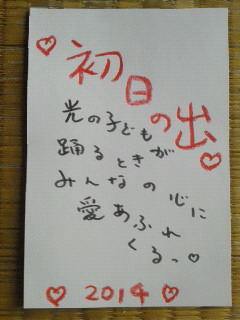 ♡初日の出♡
光の子どもが
踊るときが
みんなの心に
愛あふれ
くるっ♡
♡ 2014 ♡